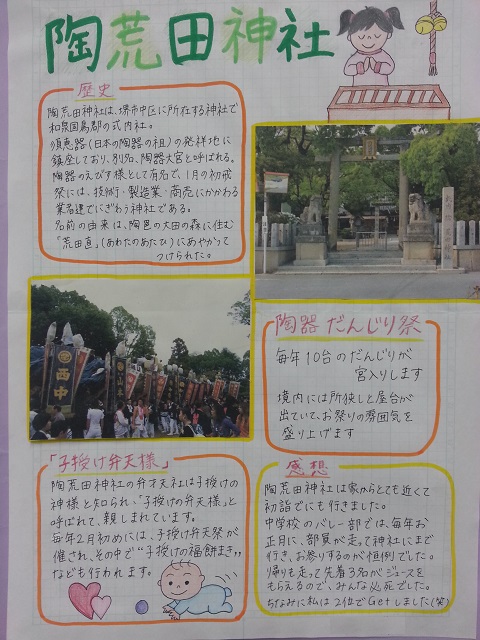 陶荒田神社
歴史
陶荒田神社は、堺市中区に所在する神社で
和泉国大鳥郡の式内社。
須恵器(日本の陶器の祖)の発祥地に
鎮座しており、別名、陶器大宮と呼ばれる。
陶器のえびす様として有名で、1月の初戎
祭には、技術・製造業・商売にかかわる
業者達でにぎわう神社である。
名前の由来は、陶邑の大田の森に住む
「荒田直」(あわたのあたひ)にあやかって
つけられた。
西中
陶器だんじり祭
毎年10台のだんじりが
宮入りします
境内には所狭しと屋台が
出ていて、お祭りの雰囲気を
盛り上げます
「子授け弁天様」
陶荒田神社の弁才天社は子授けの
神様と知られ、「子授けの弁天様」と
呼ばれて、親しまれています。
毎年2月初めには、子授け弁天祭が
催され、その中で“子授けの福餅まき”
なども行われます。
感想
陶荒田神社は家からとても近くて
初詣でにも行きました。
中学校のバレー部では、毎年お
正月に、部員が走って神社にまで
行き、お参りするのが恒例でした。
帰りも走って先着3名がジュースを
もらえるので、みんな必死でした。
ちなみに私は2位でGetしました(笑)